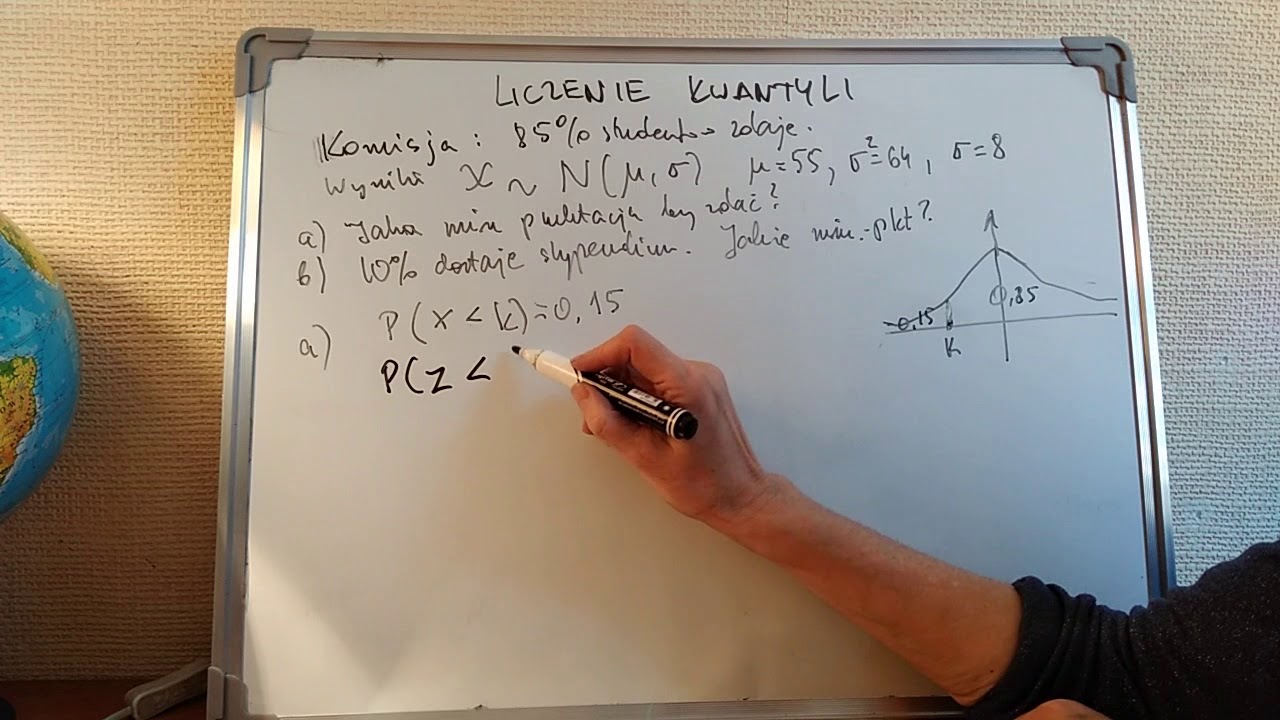 LICZENIE KWANTYLI
Komisja: 85% studentów zdaje.
Wyniki X ~ N(μ,σ) μ=55, σ²=64, σ=8
a) Jaka min punktacja by zdać?
b) 10% dostaje stypendium. Jakie min. pkt?
a) P(X<k)=0,15
P(Z<
0,85
0,15
k